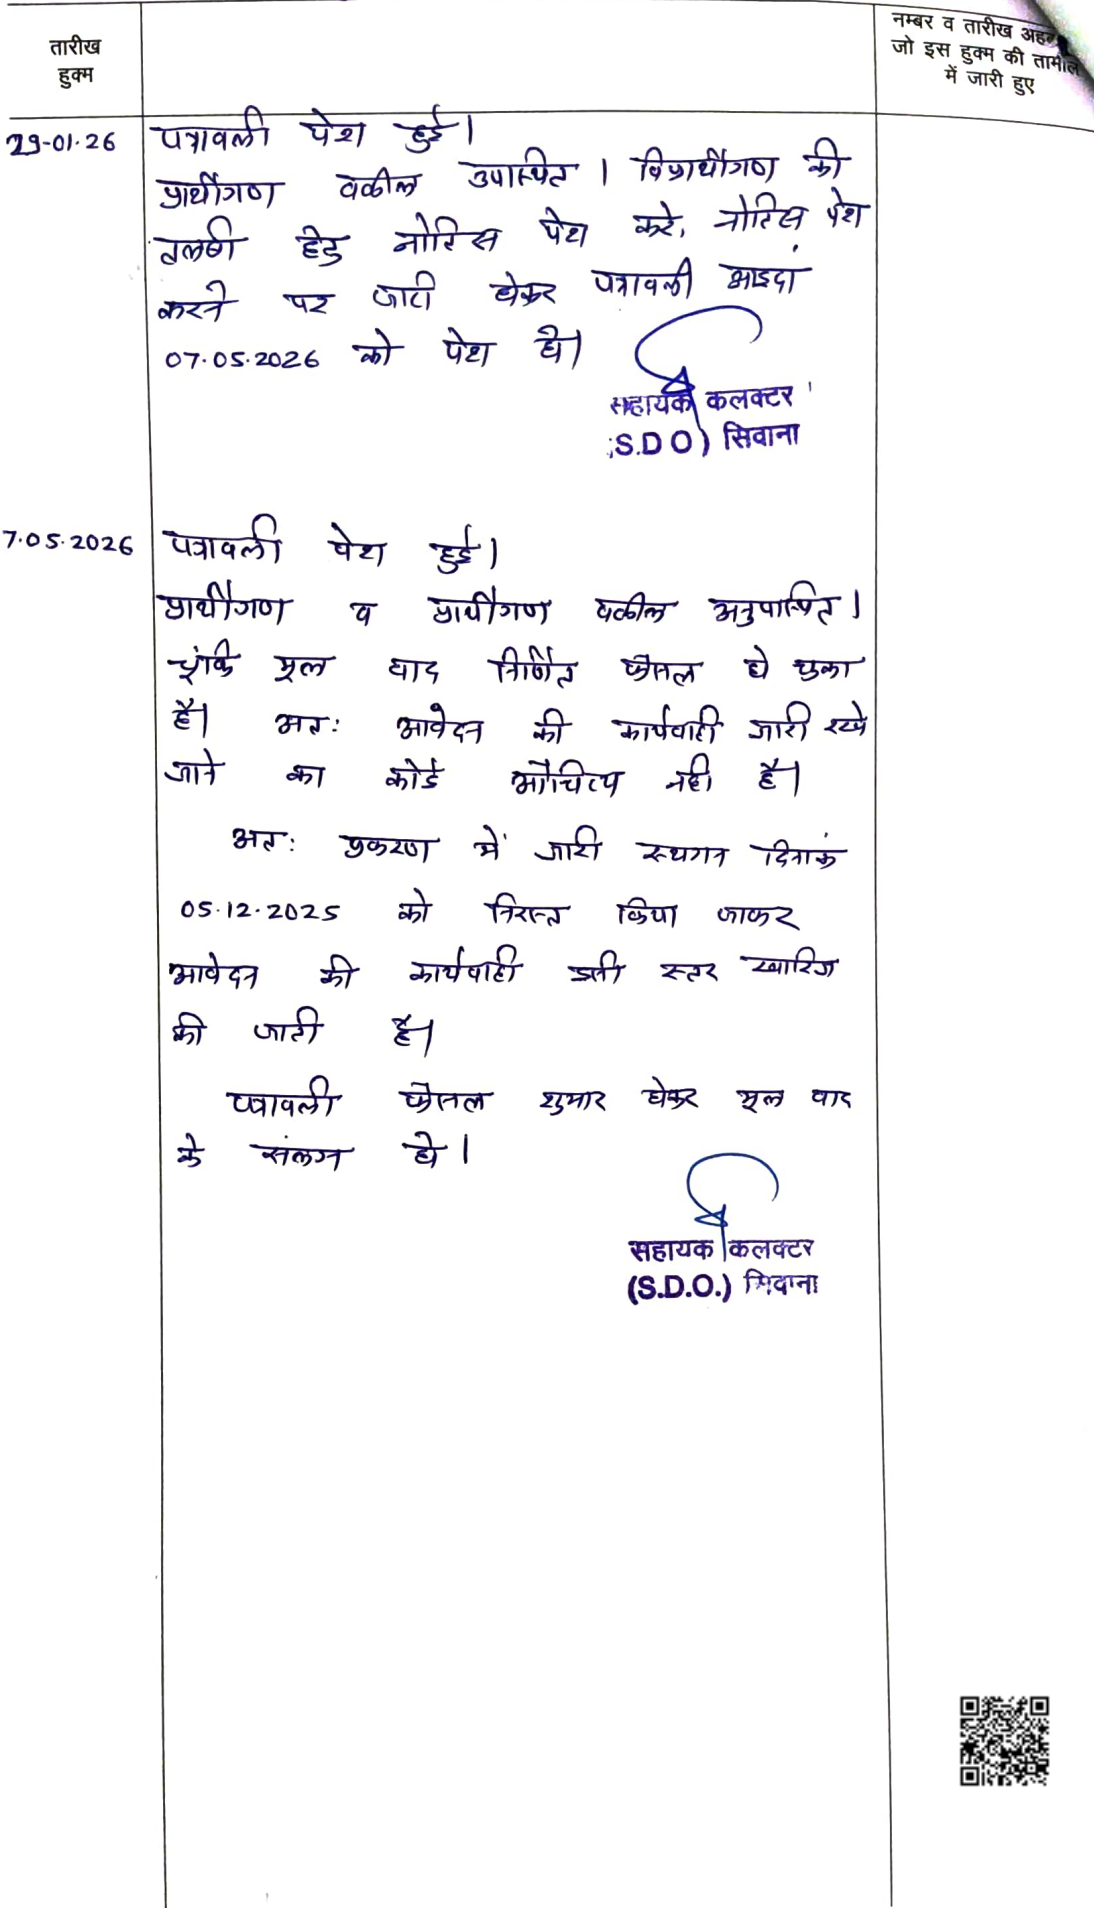 तारीख
हुक्म
नम्बर व तारीख अहका
जो इस हुक्म की तामील
में जारी हुए
29-01-26
पत्रावली पेश हुई।
प्रार्थीगण वकील उपास्थित । विप्रार्थीगण की
तलबी हेतु नोटिस पेश करे, नोटिस पेश
करने पर जारी होकर पत्रावली आइदां
07.05.2026 को पेश हो।
सहायक कलक्टर
S.D.O) सिवाना
7.05.2026
पत्रावली पेश हुई।
प्रार्थीगण व प्रार्थीगण वकील अनुपास्थित।
चूंकि मूल वाद निर्णित फैसल हो चुका
है। अत: आवेदन की कार्यवाही जारी रखे
जाने का कोई औचित्य नही है।
अत: प्रकरण में जारी स्थगन दिनांक
05.12.2025 को निरस्त किया जाकर
आवेदन की कार्यवाही इसी स्तर खारिज
की जाती है।
पत्रावली फैसल शुमार होकर मूल वाद
के संलग्न हो।
सहायक कलक्टर
(S.D.O.) सिवाना